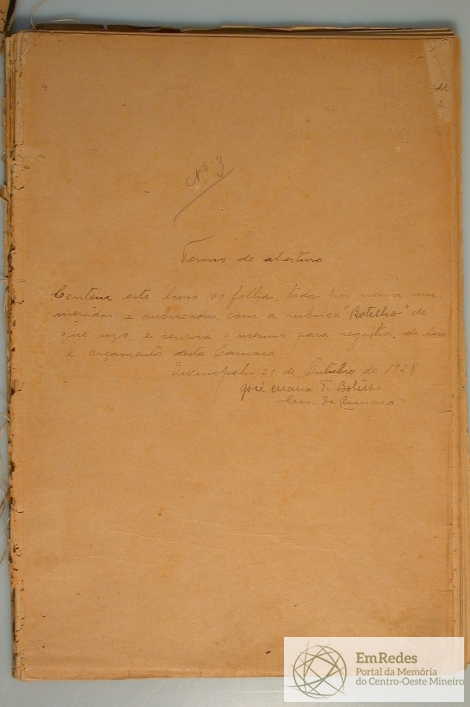 Nº 3
Termo de abertura
Contem este livro folhas todas por mim nu-
meradas e rubricadas com a rubrica "Botelho" de
que uso, e servira o mesmo para registro de leis
e orçamento desta Camara
Divinopolis, de Outubro de 1928
José Maria T. Botelho
Pres. da Camara
EmRedes
Portal da Memória
do Centro-Oeste Mineiro